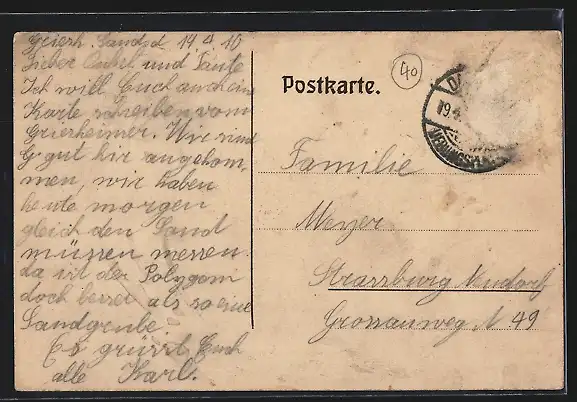 Griesh. Sand, d 19 4 10
Lieber Onkel und Tante
Ich will Euch auch ein
Karte schreiben vom
Grierheimer. Wir sind
G gut hir angekom,
men, wir haben
heute morgen
gleich den Sand
müssen messen.
da ist der Polygoni
doch besser als so eine
Sandgrube.
Es grüsst Euch
alle Karl.
Postkarte.
40
19.4
Familie
Meyer
Strassburg Neudorf
Grossauweg N 49